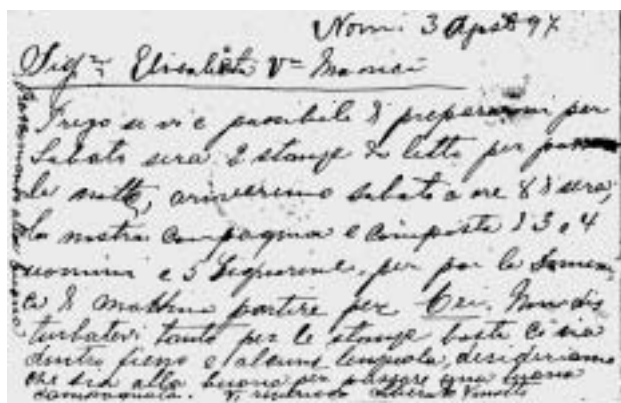 Nomi 3 Apr 97
Sig.ra Elisabetta V.a
Prego se vi è possibile di prepararmi per
Sabato sera 2 stanze da letto per
la notte, arriveremo sabato a ore 8 di sera,
la nostra compagnia e composta di 3 o 4
uomini e 5 Signorine, per poi la Domeni
ca di mattina partire per Cei. Non dis
turbatevi tanto per le stanze basta ci sia
dentro fieno e alcune lenzuola, desideriamo
che sia alla buona per passare una
campagnata. Vi